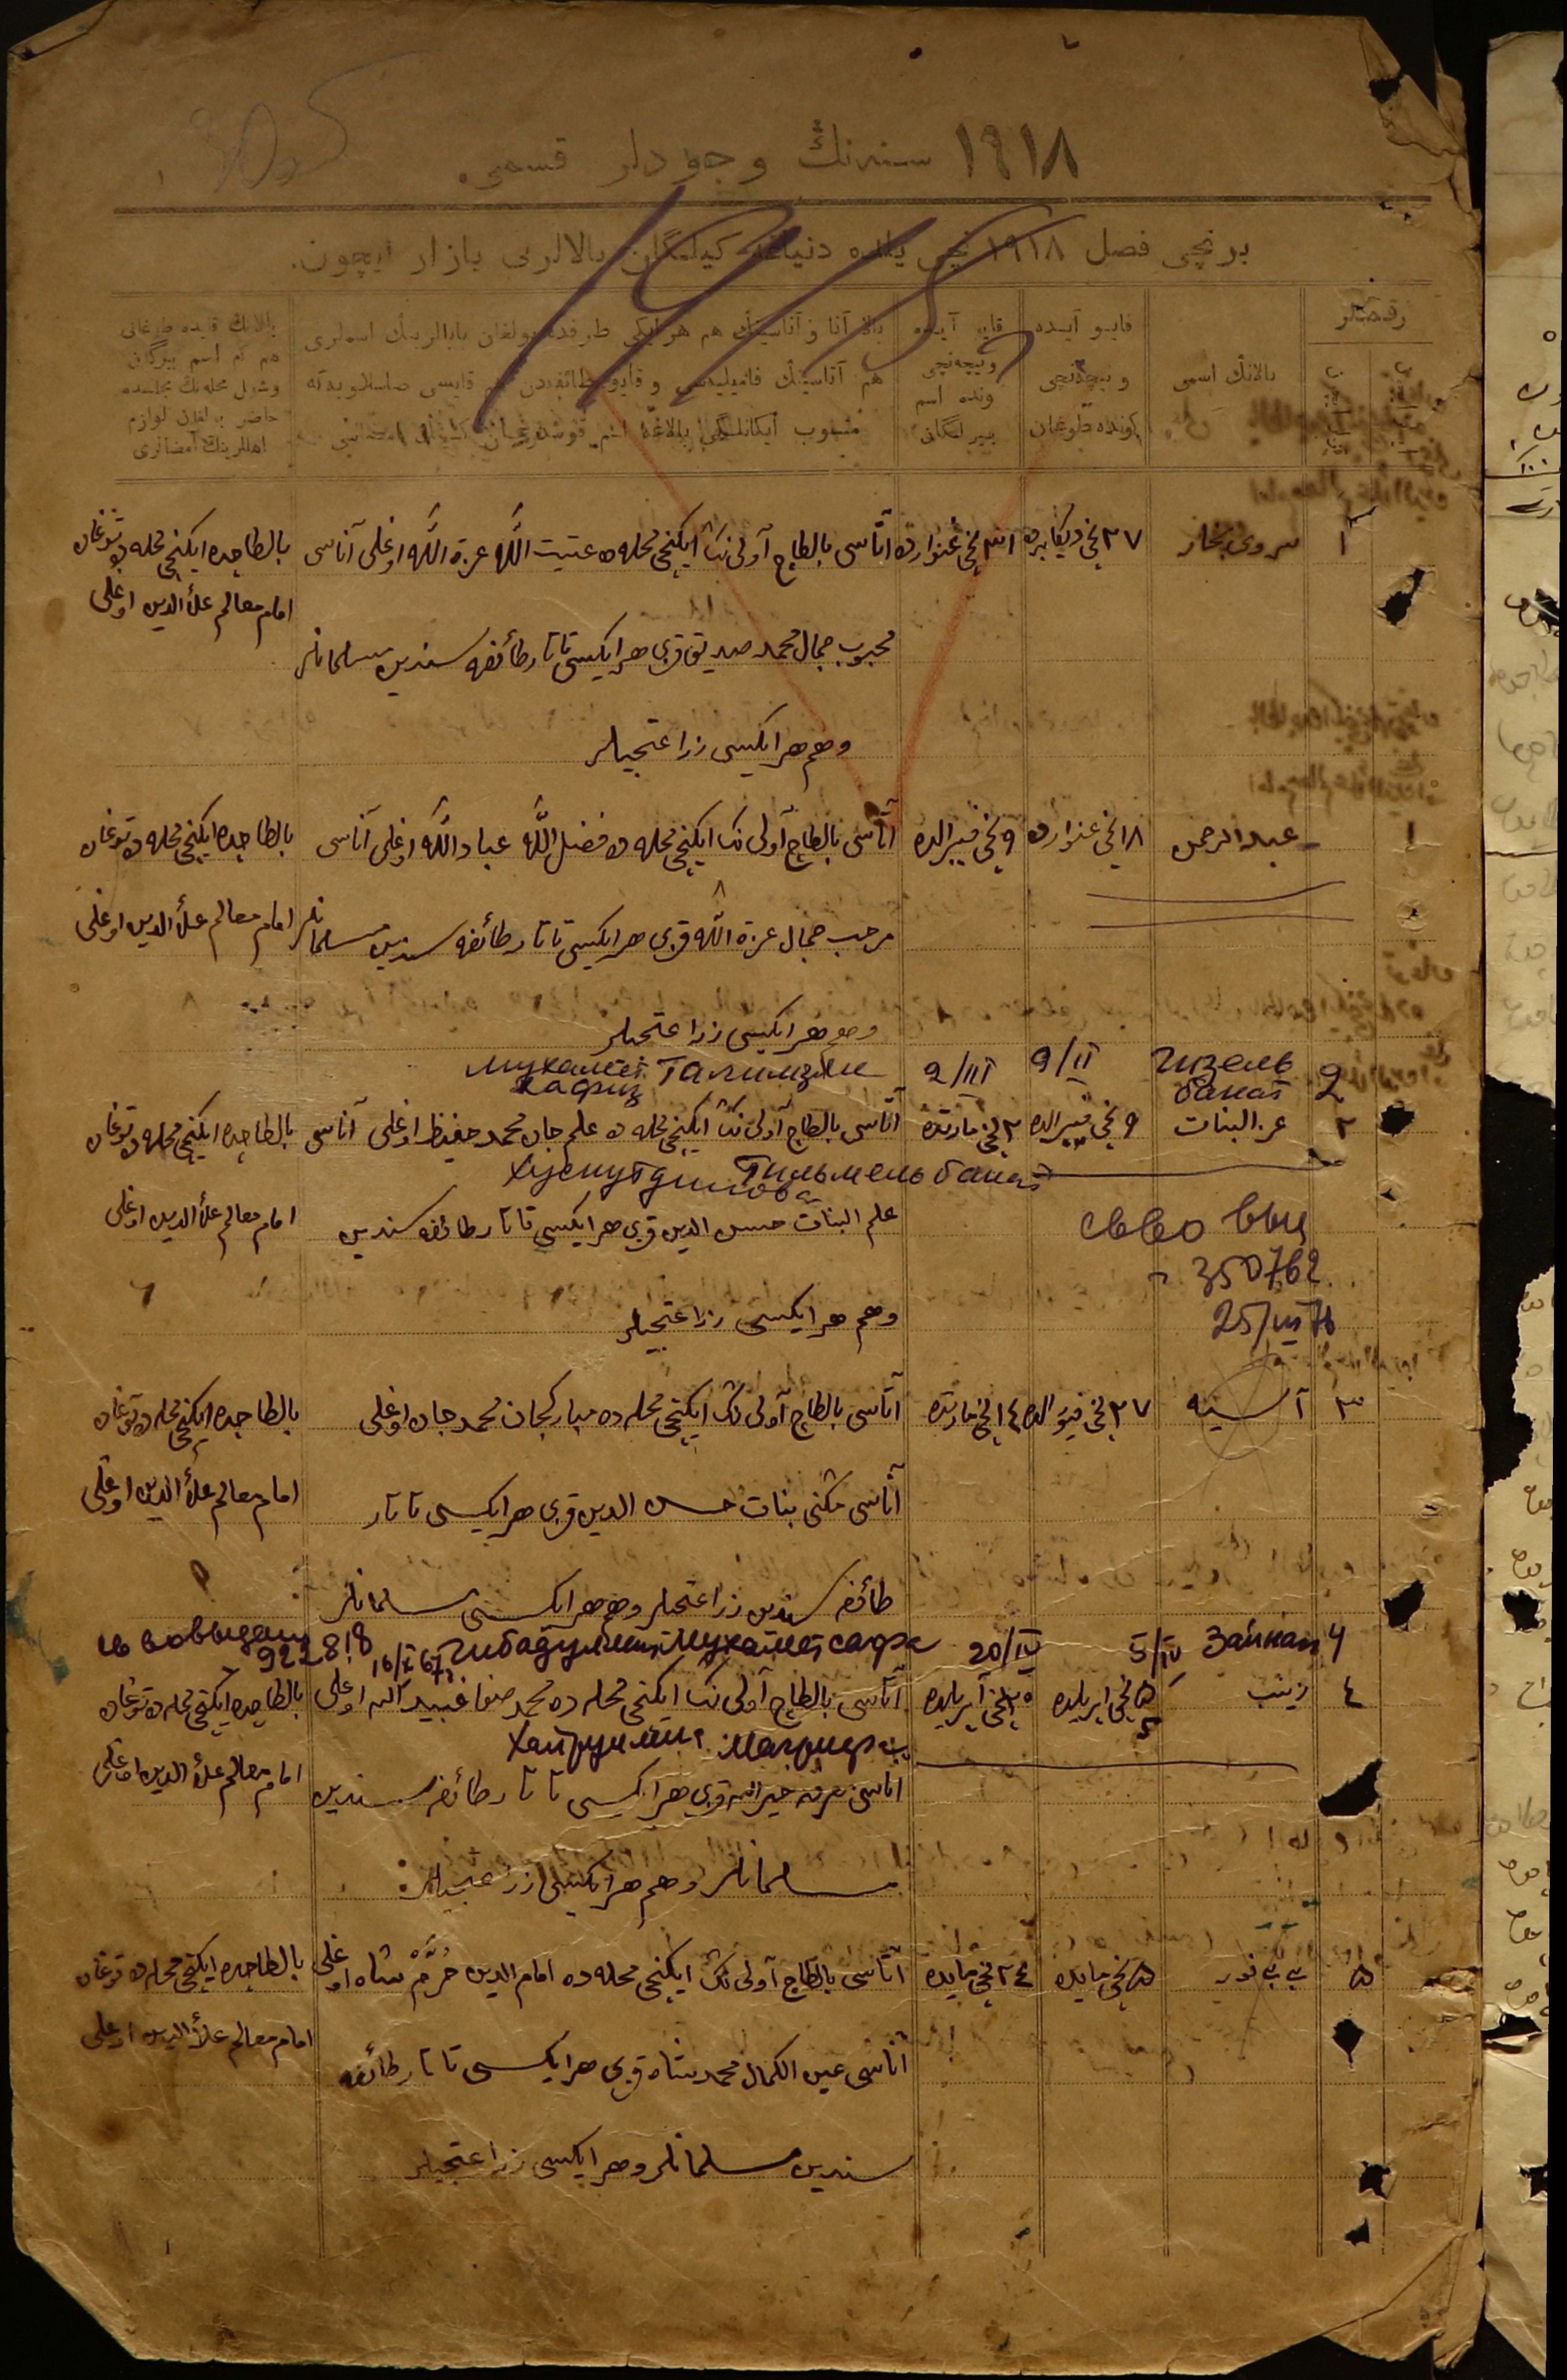 ١٩١٨ سنه‌نڭ وجودلر قسمی.
1918
برنچی فصل ١٩١٨ نچی یلده دنیاغه کیلگان بالالرنی یازار ایچون.
رقملر
بالانڭ اسمی
قایو آیده و نیچه‌نچی کونده طوغان
قایو آیده و نیچه‌نچی کونده اسم بیرلگانی
بالا آتا و آناسینڭ هم هر ایکی طرفده بولغان بابالرینڭ اسملری
هم آتاسینڭ فامیلیه‌سی و قایو طائفه‌دن
منسوب ایکانلگی بالاغه اسم قوشدرغان
بالانڭ قایده طوغانی
هم کم اسم بیرگانی
و شول محله‌نڭ مجلسده
حاضر بولغان لوازم
اهللرینڭ امضالری
١ سروی ٢٧ نچی دیکابرده غنوارده آتاسی بالطاچ آولی نڭ ایکنچی محله ده عتیت الله عزة الله اوغلی آناسی بالطاچده ایکنچی محله ده توغان
امام معالم علأ الدین اوغلی
محبوب جمال محمد صدیق قزی هر ایکیسی تاتار طائفه سندین مسلمانلر
وهم هر ایکیسی زراعتچیلر
١ عبد الرحمن ١٨ نچی غنوارده ٩ نچی فیبرالده آتاسی بالطاچ آولی نڭ ایکنچی محله ده فضل الله عباد الله اوغلی آناسی بالطاچده ایکنچی محله ده توغان
مرحب جمال عزة الله قزی هر ایکیسی تاتار طائفه سندین مسلمانلر امام معالم علأ الدین اوغلی
وهم هر ایکیسی زراعتچیلر
2 Гизель банат 9/II 2/III Галимзян Мухамет хафиз
٢ عز البنات ٩ نچی فیبرالده ٢ نچی مارتده آتاسی بالطاچ آولی نڭ ایکنچی محله ده علم جان محمد حفیظ اوغلی آناسی بالطاچده ایکنچی محله ده توغان
Гильмельбанат Хуснутдинова
علم البنات حسن الدین قزی هر ایکیسی تاتار طائفه سندین امام معالم علأ الدین اوغلی
св во выд
350762
25/III 76
وهم هر ایکیسی زراعتچیلر
٣ آسیه ٢٧ نچی فیورالده ١٤ نچی مارتده آتاسی بالطاچ آولی نڭ ایکنچی محله ده مبارکجان محمد جان اوغلی بالطاچده ایکنچی محله ده توغان
آناسی بنات حسن الدین قزی هر ایکیسی تاتار امام معالم علأ الدین اوغلی
طائفه سندین زراعتچیلر وهم هر ایکیسی مسلمانلر
4 Зайнап 5/IV 20/IV Гибадуллин Мухамет сафа 16/X 67 св во выдан 922818
٤ زینب ٥ نچی اپریلده ٢٠ نچی آپریلده آتاسی بالطاچ آولی نڭ ایکنچی محله ده محمد صفا عبید الله اوغلی بالطاچده ایکنچی محله ده توغان
Хайруллина
آناسی خیر الله قزی هر ایکیسی تاتار طائفه سندین امام معالم علأ الدین اوغلی
مسلمانلر وهم هر ایکیسی زراعتچیلر
٥ بی بی نور ٥ نچی مایده ٢٤ نچی مایده آتاسی بالطاچ آولی نڭ ایکنچی محله ده امام الدین خرم شاه اوغلی بالطاچده ایکنچی محله ده توغان
آناسی عین الکمال محمد شاه قزی هر ایکیسی تاتار طائفه امام معالم علأ الدین اوغلی
سندین مسلمانلر و هر ایکیسی زراعتچیلر